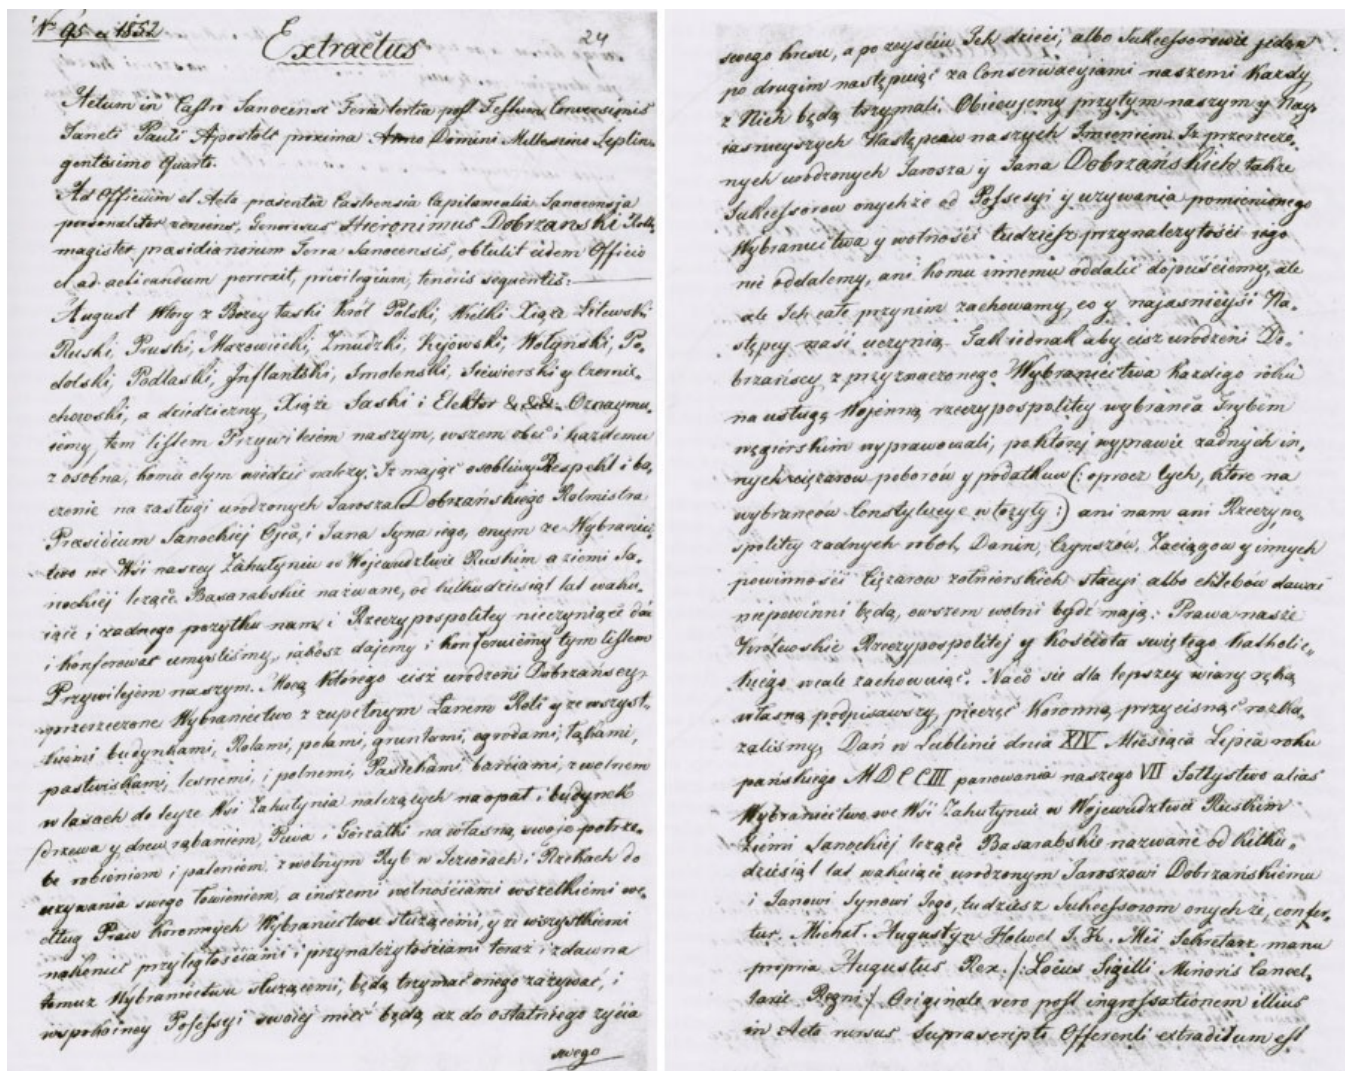 No 95 ex 1852
24
Extractus
Actum in Castro Sanocensi Feria tertia post Festum Conversionis
Sancti Pauli Apostoli proxima Anno Domini Millesimo Septin„
gentesimo Quarto.
Ad Officium et Acta praesentia Castrensia Capitanealia Sanocensia
personaliter veniens, Generosus Hieronimus Dobrzanski Rott„
magister praesidianorum Terrae Sanocensis, obtulit eidem Officio
et ad acticandum porrexit, privilegium, tenoris sequentis:
August Wtóry z Bożey łaski Król Polski, Wielki Xiąże Litewski
Ruski, Pruski, Mazowiecki, Zmudzki, Kijowski, Wołyński, Po„
dolski, Podlaski, Inflantski, Smolenski, Siewierski y Czernie„
chowski, a dziedziczny, Xiąże Saski i Elektor &&&. Oznaymu„
iemy tem listem Przywileiem naszym, wszem obec i każdemu
z osobna, komu otym wiedzić należy; Iż mając osobliwy Respekt i ba„
czenie na zasługi urodzonych Jarosza Dobrzańskiego Rotmistra
Presidium Sanockiej Ojca, i Jana Syna iego, onym ze Wybraniec„
two we Wsi naszey Zahutyniu w Wojewudztwie Ruskim a ziemi Sa„
nockiej leżące Basarabskie nazwane, od kilkudziesiąt lat waku„
iące i żadnego pożytku nam i Rzeczypospolitey nieczyniące dać
i konferować umyśliśmy, iakosz dajemy i konferuiemy tym listem
Przywilejem naszym. Mocą którego cisz urodzeni Dobrzańscy,
pprzerzeczone Wybraniectwo z zupełnym Łanem Roli y ze wszyst„
kiemi budynkami, Rolami, polami, gruntami, ogrodami, łąkami,
pastwiskami, lesnemi, i polnemi, Pasiekami, barciami, z wolnem
w lasach do teyże Wsi Zahutynia należących na opał i budynek
drzewa y drew rąbaniem, Piwa i Górzałki na własną swoję potrze„
be robieniem i paleniem. z wolnym Ryb w Jeziorach i Rzekach do
używania swego łowieniem, a inszemi wolnościami wszelkiemi we„
dług Praw koronnych Wybraniectwu służącemi, y ze wszystkiemi
przyległościami i przynależytościami teraz i zdawna
temuż Wybraniectwu służącemi, będą trzymać onego zażywać, i
w spokoiney Possessyi swoiey mieć będą aż do ostatniego życia
swego
swego kresu, a po zeyściu Ich dzieci, albo Sukcessorowie jeden
po drugim następuiąc za Conserwacyiami naszemi Każdy
z Nich będą trzymali. Obiecujemy przytym naszym y Nay„
iasnieyszych Następcow naszych Imieniem. Iż przerzeczo„
nych urodzonych Jarosza y Jana Dobrzańskich także
Sukcessorow onychże od Possesyi y używania pomienionego
Wybraniectwa y wolności tudziesz przynależytości iego
nie oddalemy, ani komu innemu oddalić dopuściemy, ale
ale Ich całe przynim zachowamy, co y najasnieyśi Na„
stępcy nasi uczynią. Jak iednak aby cisz urodzeni Do„
brzańscy z przyznaczonego Wybraniectwa każdego roku
na usługę Wojenną rzeczypospolitey wybrańca trybem
węgierskim wyprawowali, po której wyprawie żadnych in„
nych ciężarow poborów y podatkuw (: oprocz tych, które na
wybrancow konstytucye włożyły :) ani nam ani Rzeczypo„
spolitey żadnych robot, Danin, Czynszów, Zaciągow y innych
powinności Ciężarow żołnierskich stacyi albo chlebów dawać
niepowinni będą, owszem wolni bydź mają: Prawa nasze
Królewskie Rzeczypospolitej y Kościoła swiętego Katholic„
kiego wcale zachowuiąc. Naco sie dla lepszey wiary ręką
własną podpisawszy, pieczęć Koronną przycisnąć rozka„
zaliśmy, Dań w Lublinie dnia XIV Miesiąca Lipca roku
pańskiego MDCCIII panowania naszego VII Sołtystwo alias
Wybraniectwo we Wsi Zahutyniu w Wojewudztwie Ruskim
Ziemi Sanockiej leżące Basarabskie nazwane od kilku„
dziesiąt lat wakuiące urodzonym Jaroszowi Dobrzańskiemu
i Janowi Synowi Jego, tudziesz Sukcessorom onychże, confer„
tur. Michał Augustyn Holwel J. K. Mći Sekretarz manu
propria Augustus Rex. /: Locus Sigilli Minoris Cancel„
lariae Regni :/ Originale vero post ingrossationem illius
in Acta rursus Suprascripti Offerenti extraditum est